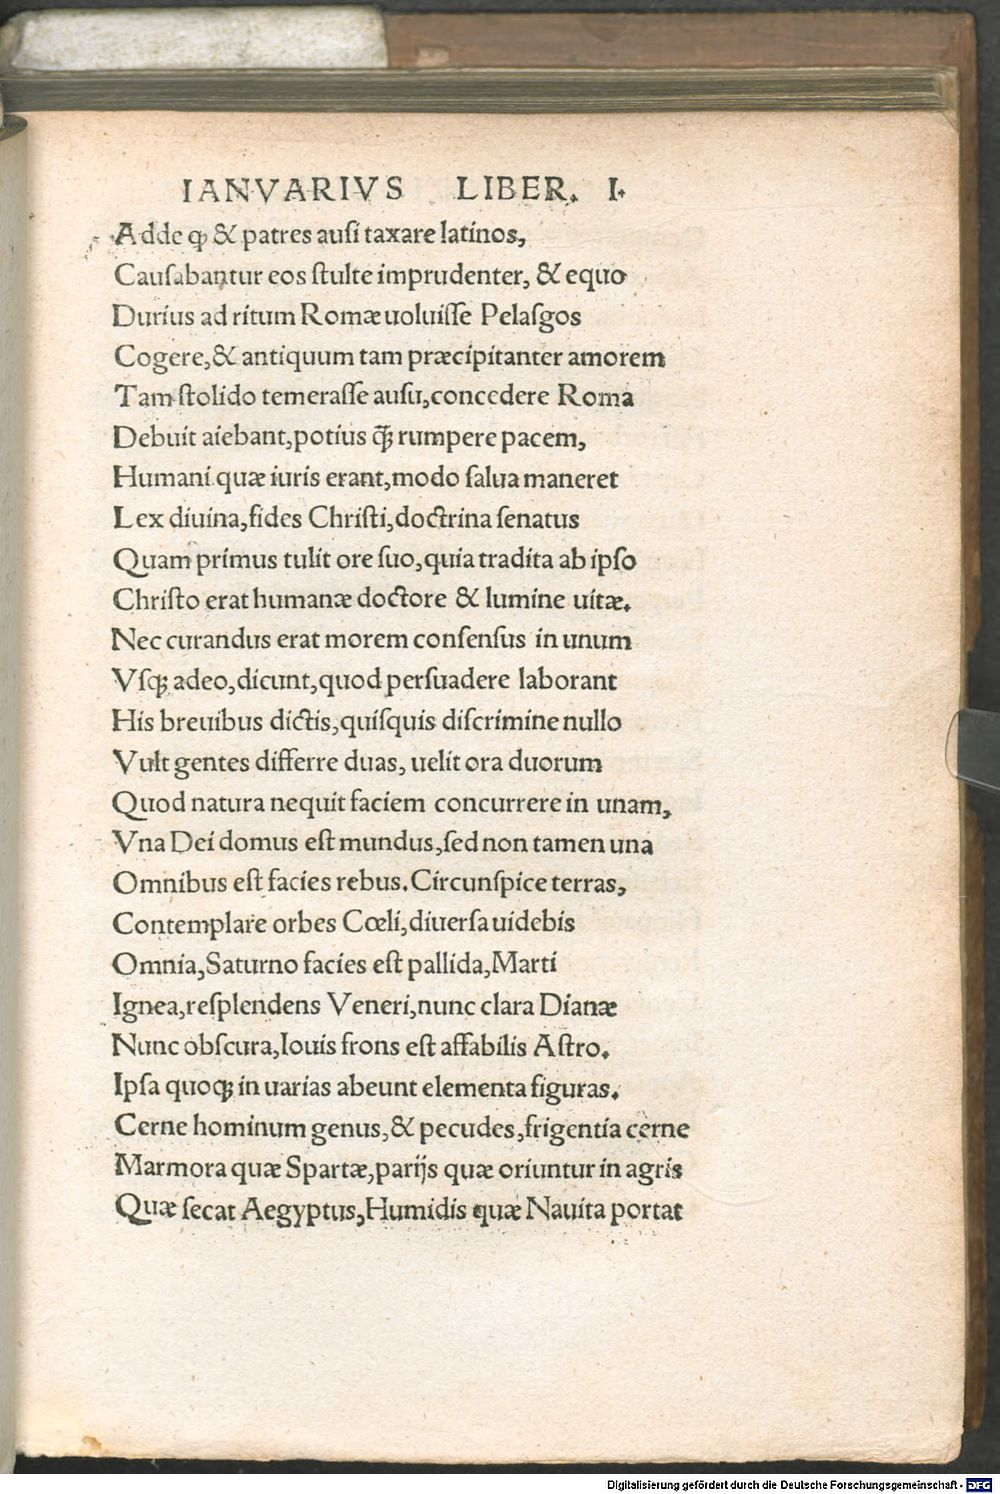 IANVARIVS LIBER. I.
Adde ꝙ & patres ausi taxare latinos,
Causabantur eos stulte imprudenter, & equo
Durius ad ritum Romæ uoluisse Pelasgos
Cogere, & antiquum tam præcipitanter amorem
Tam stolido temerasse ausu, concedere Roma
Debuit aiebant, potius q̃ꝫ rumpere pacem,
Humani quæ iuris erant, modo salua maneret
Lex diuina, fides Christi, doctrina senatus
Quam primus tulit ore suo, quia tradita ab ipso
Christo erat humanæ doctore & lumine uitæ.
Nec curandus erat morem consensus in unum
Vsqꝫ adeo, dicunt, quod persuadere laborant
His breuibus dictis, quisquis discrimine nullo
Vult gentes differre duas, uelit ora duorum
Quod natura nequit faciem concurrere in unam,
Vna Dei domus est mundus, sed non tamen una
Omnibus est facies rebus. Circunspice terras,
Contemplare orbes Cœli, diuersa uidebis
Omnia, Saturno facies est pallida, Marti
Ignea, resplendens Veneri, nunc clara Dianæ
Nunc obscura, Iouis frons est affabilis Astro.
Ipsa quoqꝫ in uarias abeunt elementa figuras.
Cerne hominum genus, & pecudes, frigentia cerne
Marmora quæ Spartæ, parijs quæ oriuntur in agris
Quæ secat Aegyptus, Humidis quæ Nauita portat
Digitalisierung gefördert durch die Deutsche Forschungsgemeinschaft - DFG